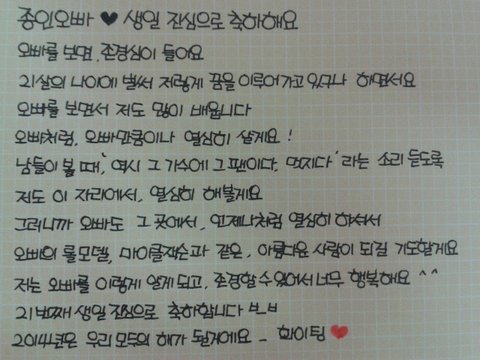 종인오빠 ♥ 생일 진심으로 축하해요
오빠를 보면, 존경심이 들어요
21살의 나이에 벌써 저렇게 꿈을 이루어가고 있구나 하면서요
오빠를 보면서 저도 많이 배웁니다
오빠처럼, 오빠만큼이나 열심히 살게요!
남들이 볼 때, '역시 그 가수에 그 팬이다, 멋지다' 라는 소리 듣도록
저도 이 자리에서, 열심히 해볼게요
그러니까 오빠도 그 곳에서, 언제나처럼 열심히 하셔서
오빠의 롤모델, 마이클잭슨과 같은, 아름다운 사람이 되길 기도할게요
저는 오빠를 이렇게 알게 되고, 존경할 수 있어서 너무 행복해요 ^^
21번째 생일 진심으로 축하합니다 ㅂ_ㅂ
2014년은 우리 모두의 해가 될거에요 _ 화이팅 ♥